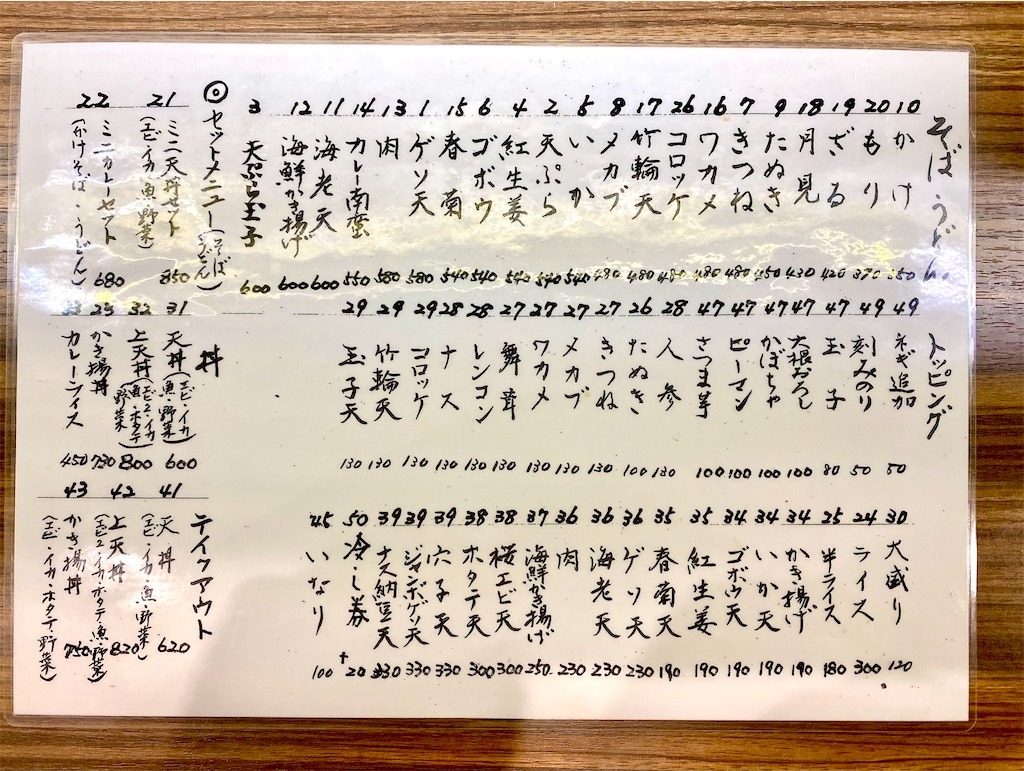 そば・うどん
10 かけ 350
20 もり 370
19 ざる 420
18 月見 430
9 たぬき 450
7 きつね 480
16 ワカメ 480
26 コロッケ 480
17 竹輪天 480
8 メカブ 480
5 いか 540
2 天ぷら 540
4 紅生姜 540
6 ゴボウ 540
15 春菊 540
1 ゲソ天 580
13 肉 580
14 カレー南蛮 550
11 海老天 600
12 海鮮かき揚げ 600
3 天ぷら玉子 600
◎セットメニュー(そば うどん)
21 ミニ天丼セット 850
(エビ・イカ・魚・野菜)
22 ミニカレーセット 680
(かけそば・うどん)
トッピング
49 ネギ追加 50
49 刻みのり 50
47 玉子 80
47 大根おろし 100
47 かぼちゃ 100
47 ピーマン 100
47 さつま芋 100
28 人参 130
26 たぬき 100
27 きつね 130
27 メカブ 130
27 ワカメ 130
27 舞茸 130
28 レンコン 130
28 ナス 130
29 コロッケ 130
29 竹輪天 130
29 玉子天 130
丼
31 天丼(エビ・イカ 魚・野菜) 600
32 上天丼(エビ2・イカ 魚・ホタテ 野菜) 800
23 かき揚丼 730
33 カレーライス 450
30 大盛り 120
24 ライス 300
25 半ライス 180
34 かき揚げ 190
34 いか天 190
34 ゴボウ天 190
35 紅生姜 190
35 春菊天 190
36 ゲソ天 230
36 海老天 230
36 肉 230
37 海鮮かき揚げ 250
38 桜エビ天 300
38 ホタテ天 300
39 穴子天 330
39 ジャンボゲソ天 330
39 ナス納豆天 330
50 冷し券 +20
45 いなり 100
テイクアウト
41 天丼 620
(エビ・イカ・魚・野菜)
42 上天丼 820
(エビ2・イカ・ホタテ・魚・野菜)
43 かき揚丼 750
(エビ・イカ・ホタテ・野菜)